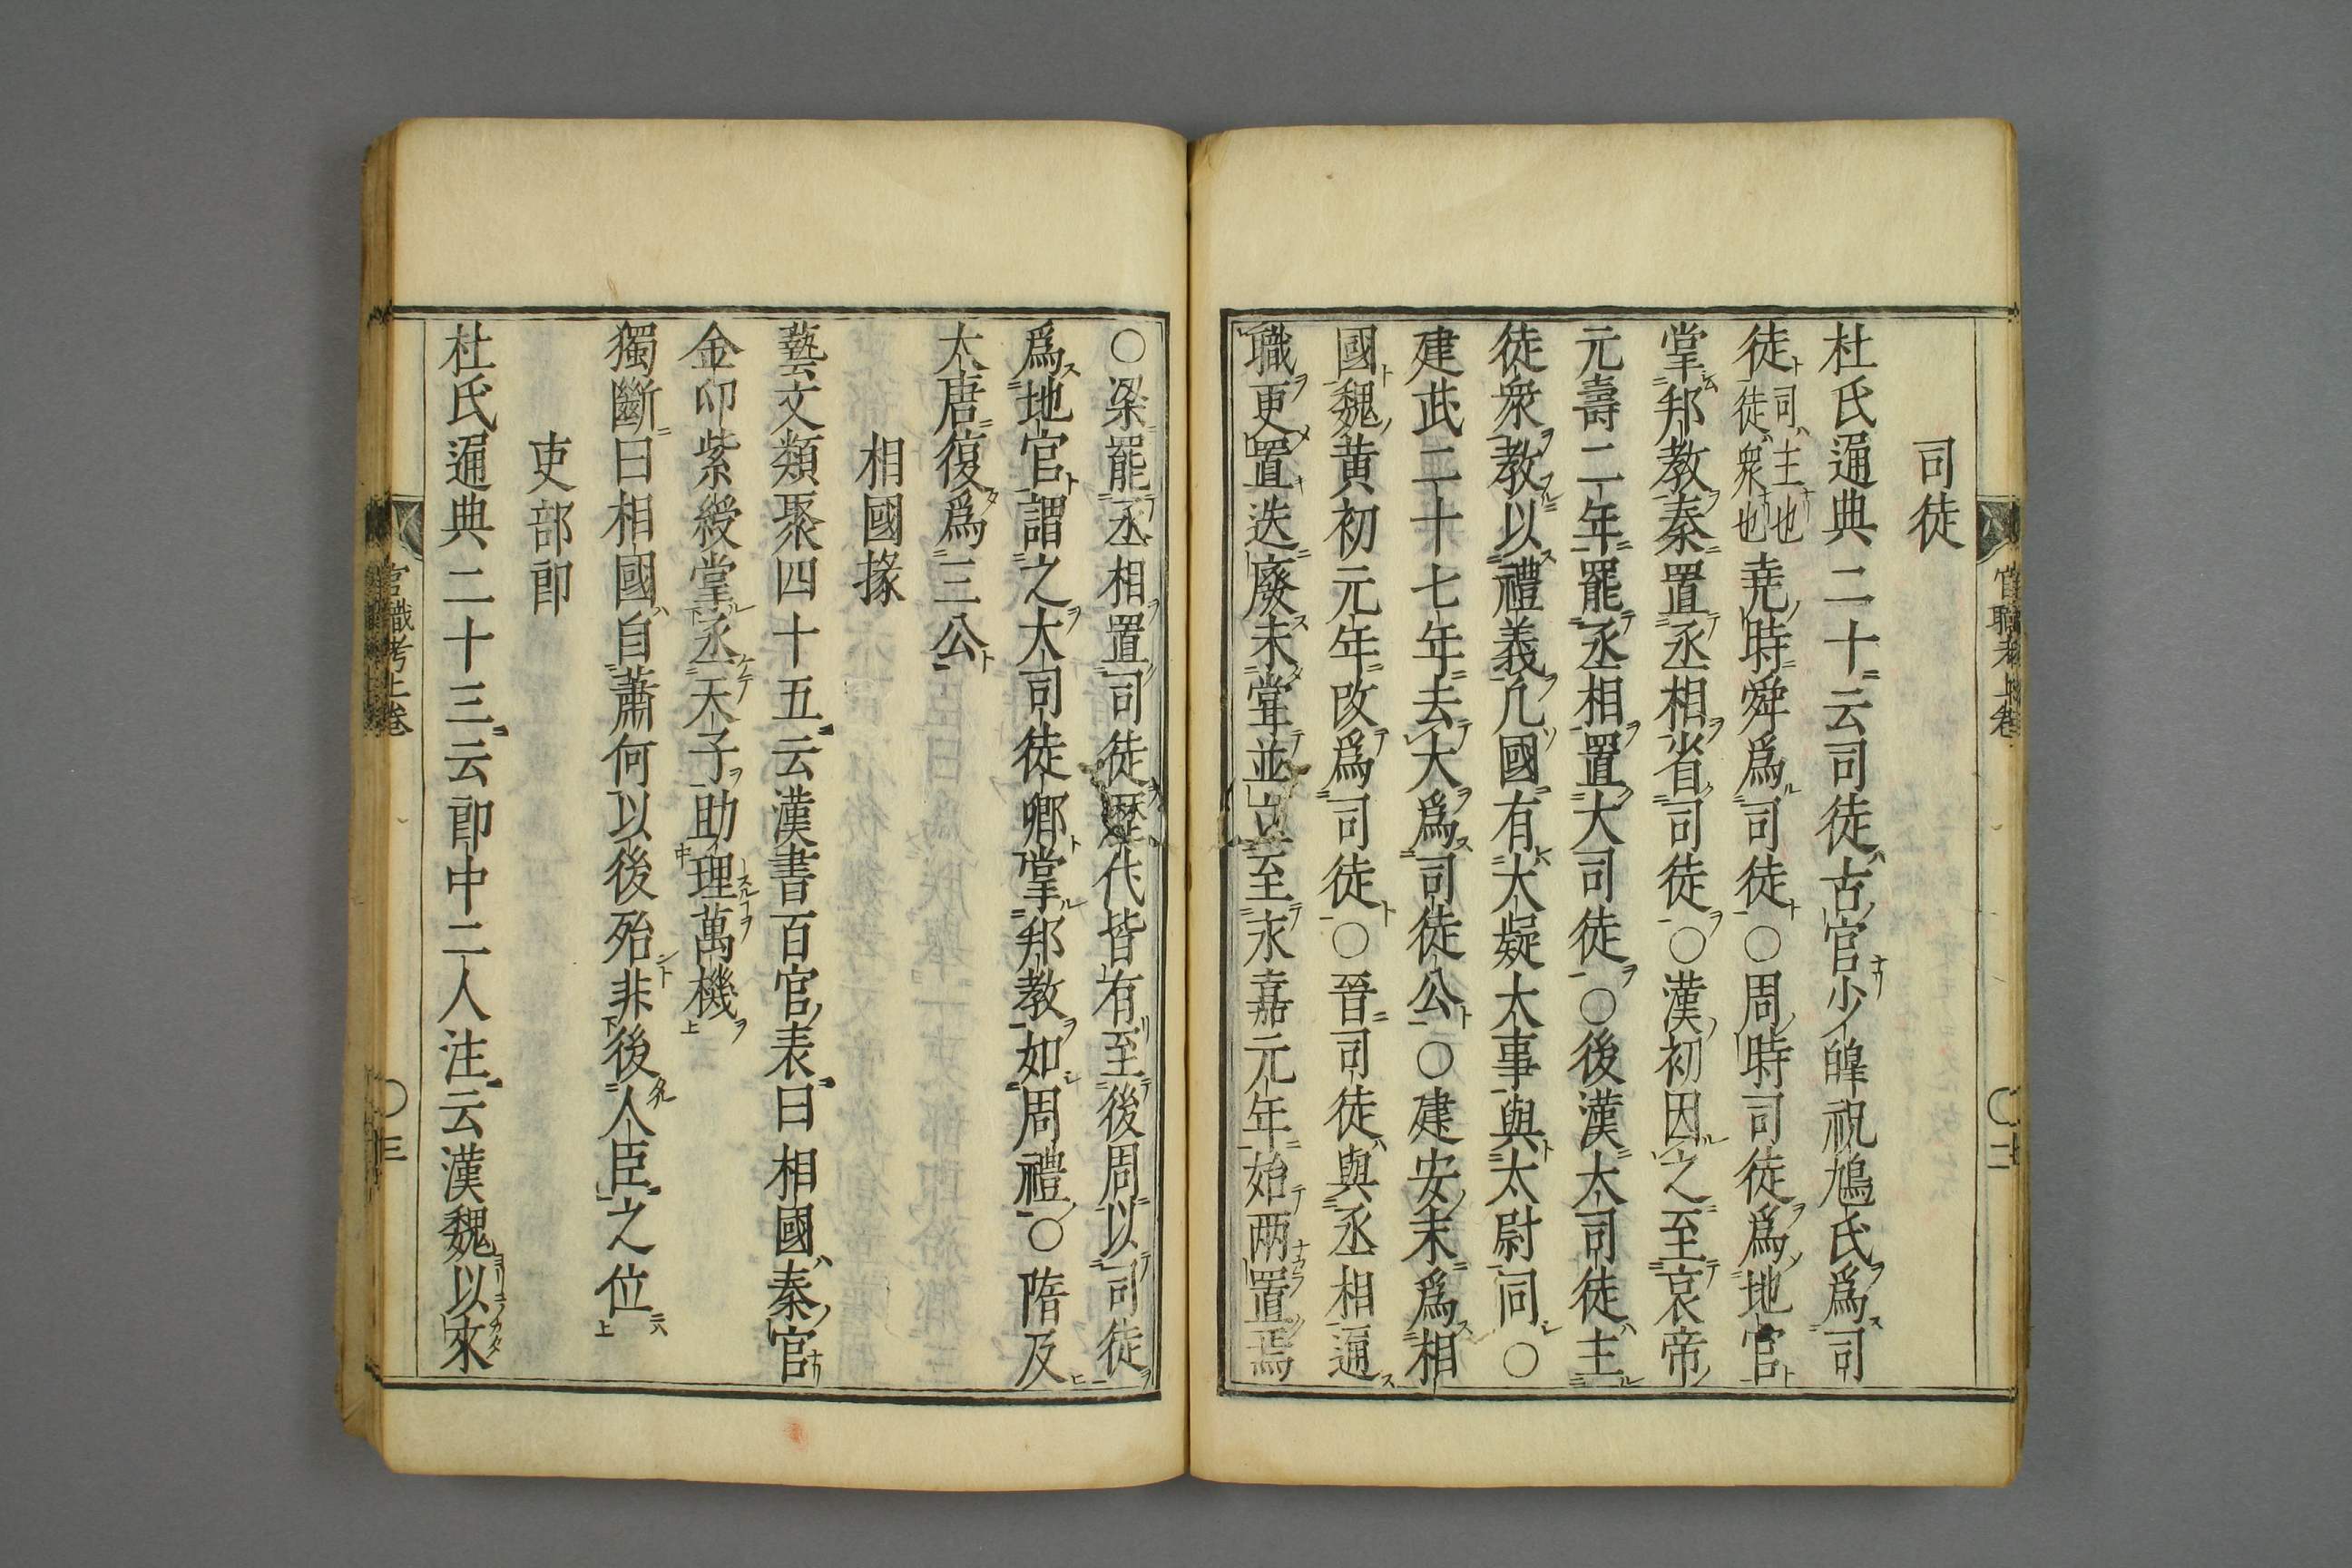 司徒
杜氏通典二十云司徒古官少皞祝鳩氏爲司
徒司主也徒衆也堯時舜爲司徒○周時司徒爲地官
掌邦教秦置丞相省司徒○漢初因之至哀帝
元壽二年罷丞相置大司徒○後漢大司徒主
徒衆教以禮義凡國有大疑大事與太尉同○
建武二十七年去大爲司徒公○建安末爲相
國魏黄初元年改爲司徒○晉司徒與丞相通
職更置迭廢未甞並立至永嘉元年始兩置焉
官職考上卷
○二
○梁罷丞相置司徒歷代皆有至後周以司徒
爲地官謂之大司徒卿掌邦教如周禮○隋及
大唐復爲三公
相國掾
藝文類聚四十五云漢書百官表曰相國秦官
金印紫綬掌丞天子助理萬機
獨斷曰相國自蕭何以後殆非後人臣之位
吏部郎
杜氏通典二十三云郎中二人注云漢魏以來
官職考上卷
○三